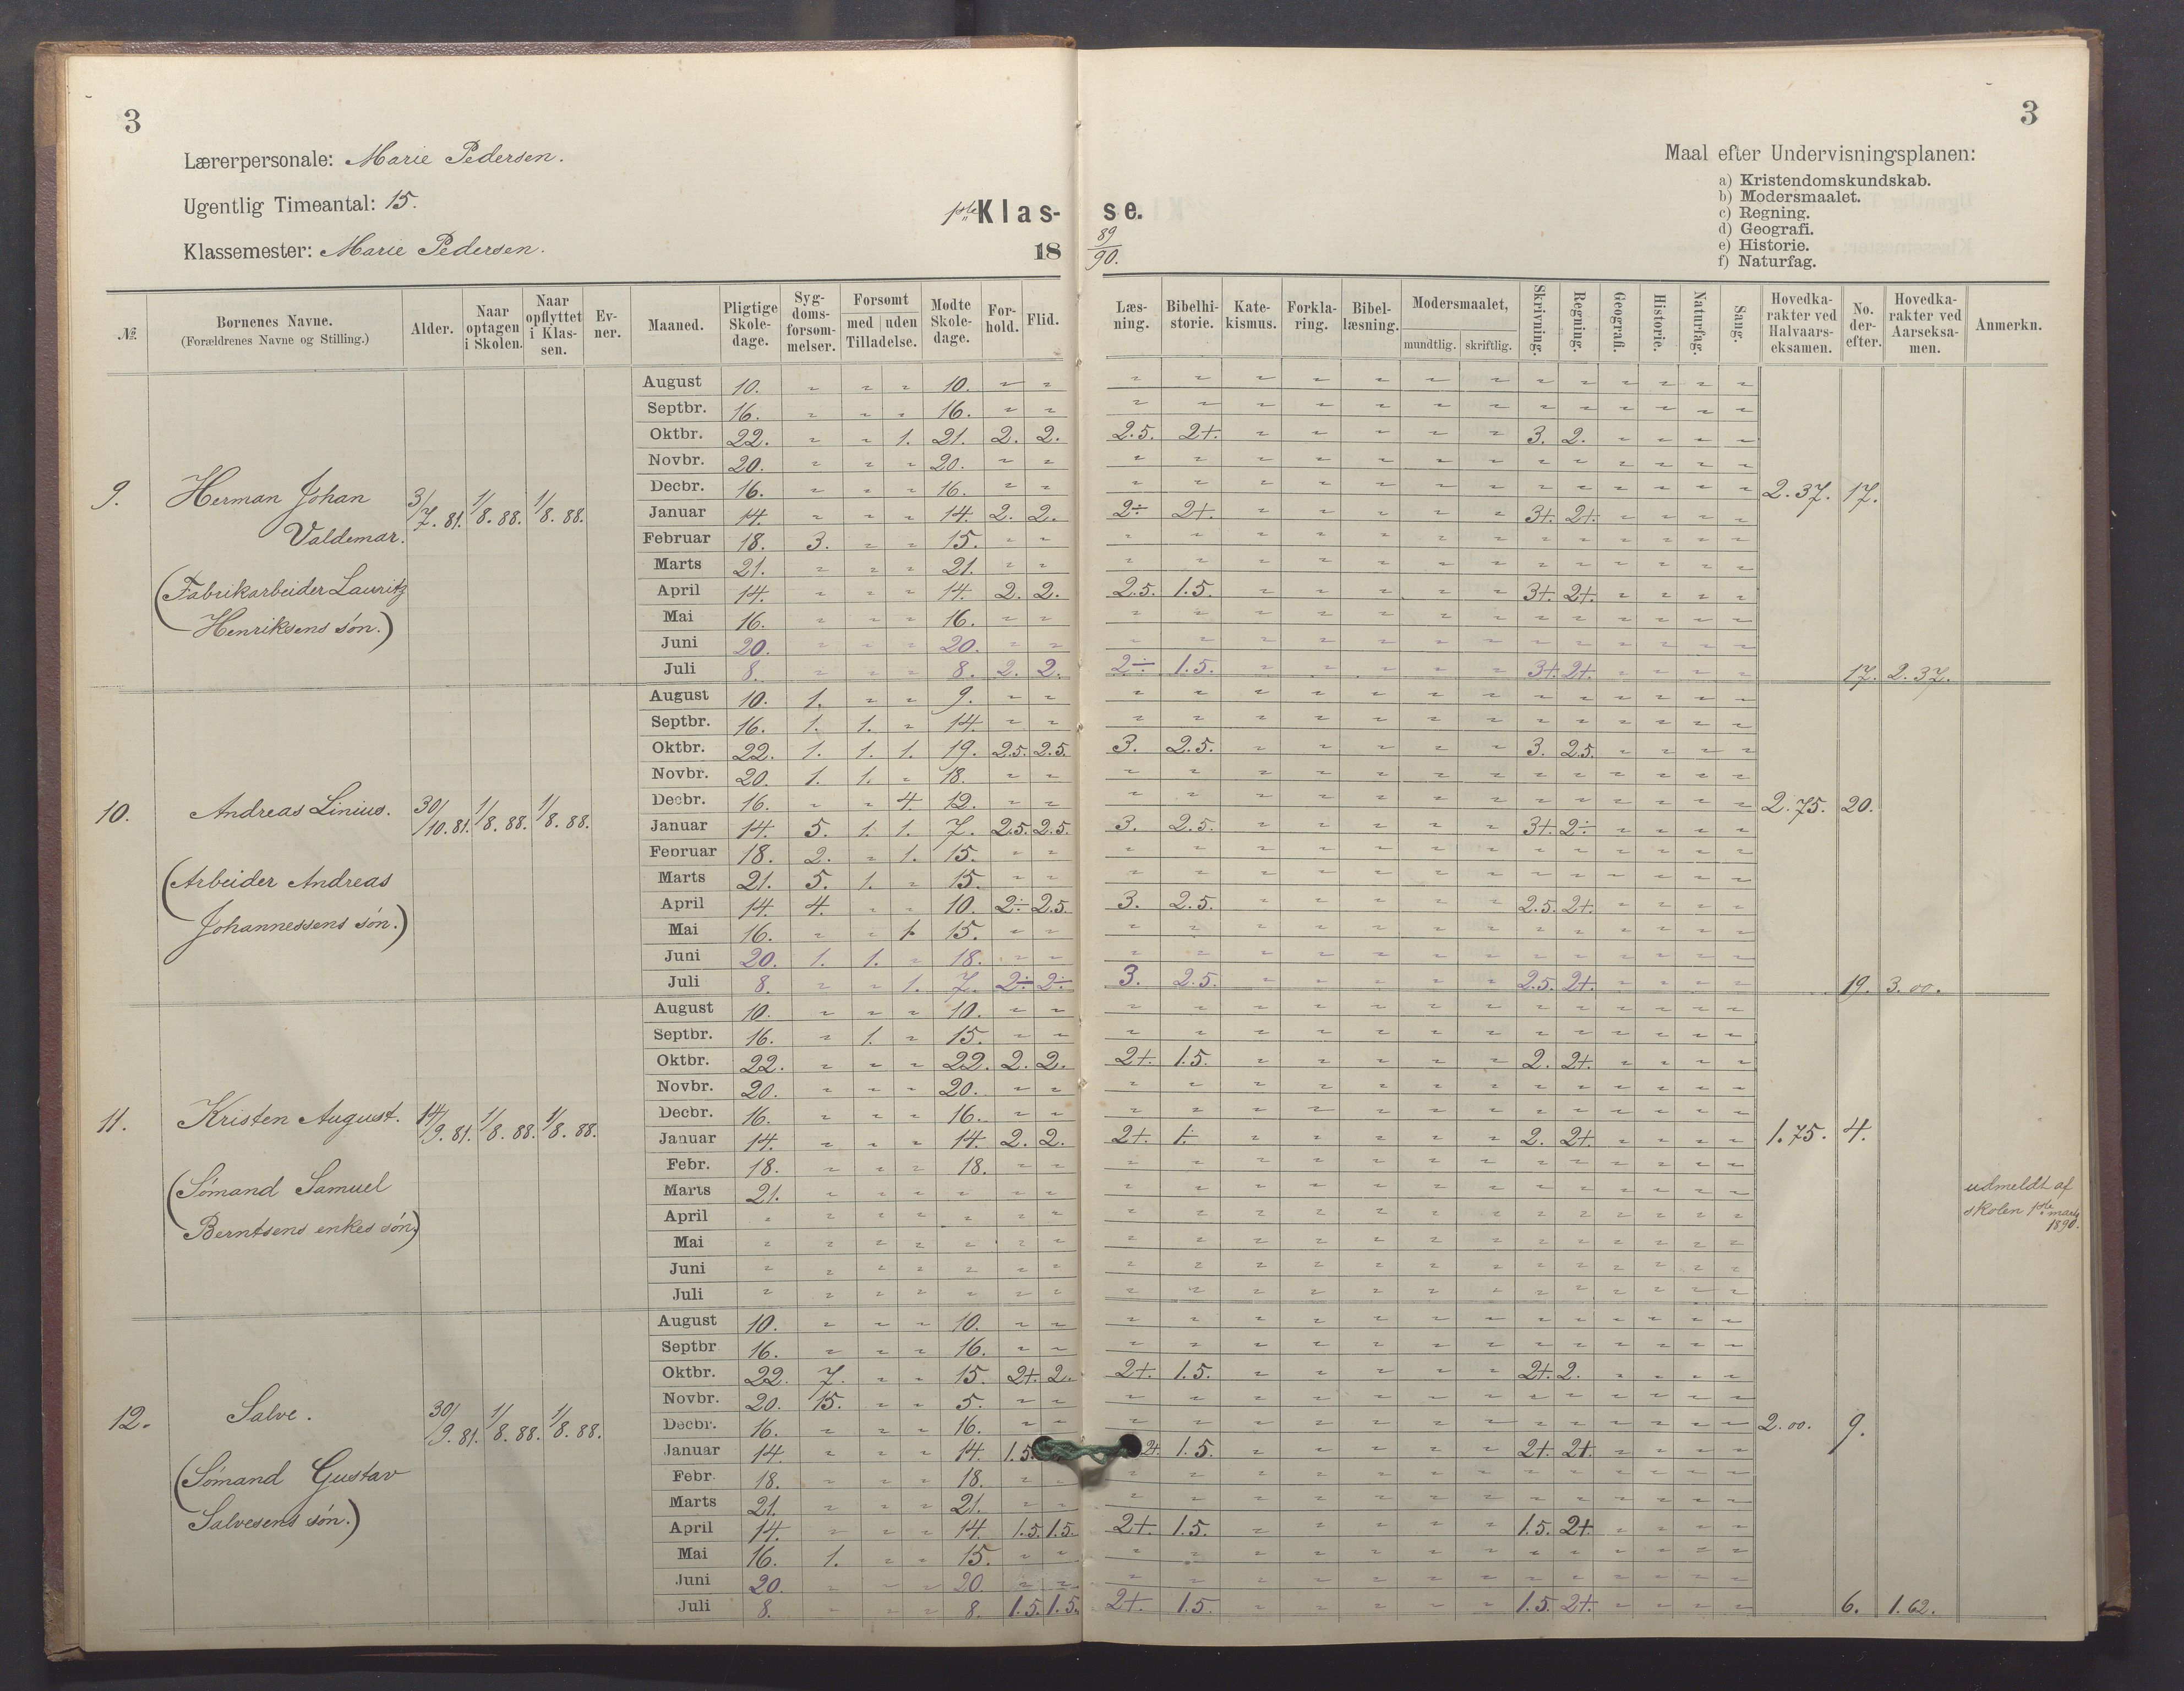 3
3
Lærerpersonale: Marie Pedersen.
Ugentlig Timeantal: 15.
Klassemester: Marie Pedersen.
1ste Klas-
se.
18
89/90.
Maal efter Undervisningsplanen:
a) Kristendomskundskab.
b) Modersmaalet.
c) Regning.
d) Geografi.
e) Historie.
f) Naturfag.
№ | Børnenes Navne. (Forældrenes Navne og Stilling.) | Alder. | Naar optagen i Skolen. | Naar opflyttet i Klassen. | Evner. | Maaned. | Pligtige Skoledage. | Sygdomsforsømmelser. | Forsømt med Tilladelse. | uden | Mødte Skoledage. | Forhold. | Flid. | Læsning. | Bibelhistorie. | Katekismus. | Forklaring. | Bibellæsning. | Modersmaalet, mundtlig. | skriftlig. | Skrivning. | Regning. | Geografi. | Historie. | Naturfag. | Sang. | Hovedkarakter ved Halvaarseksamen. | No. derefter. | Hovedkarakter ved Aarseksamen. | Anmerkn.
9. Herman Johan
Valdemar. 3/7. 81. 1/8. 88. 1/8. 88.
(Fabrikarbeider Lauritz
Henriksens søn.)
August 10. " " " 10. " "
Septbr. 16. " " " 16. " "
Oktbr. 22. " " 1. 21. 2. 2. 2.5. 2+. 3. 2.
Novbr. 20. " " " 20. " "
Decbr. 16. " " " 16. " " 2.37. 17.
Januar 14. " " " 14. 2. 2. 2÷ 2+. 3+. 2+.
Februar 18. 3. " " 15. " "
Marts 21. " " " 21. " "
April 14. " " " 14. 2. 2. 2.5. 1.5. 3+. 2+.
Mai 16. " " " 16. " "
Juni 20. " " " 20. " "
Juli 8. " " " 8. 2. 2. 2÷ 1.5. 3+. 2+. 17. 2.37.
10. Andreas Linius. 30/10. 81. 1/8. 88. 1/8. 88.
(Arbeider Andreas
Johannessens søn.)
August 10. 1. " " 9. " "
Septbr. 16. 1. 1. " 14. " "
Oktbr. 22. 1. 1. 1. 19. 2.5. 2.5. 3. 2.5. 3. 2.5.
Novbr. 20. 1. 1. " 18. " "
Decbr. 16. " " 4. 12. " " 2.75. 20.
Januar 14. 5. 1. 1. 7. 2.5. 2.5. 3. 2.5. 3+. 2÷
Februar 18. 2. " 1. 15. " "
Marts 21. 5. 1. " 15. " "
April 14. 4. " " 10. 2÷ 2.5. 3. 2.5. 2.5. 2+.
Mai 16. " " 1. 15. " "
Juni 20. 1. 1. " 18. " "
Juli 8. " " 1. 7. 2÷ 2÷ 3. 2.5. 2.5. 2+. 19. 3.00.
11. Kristen August. 14/9. 81. 1/8. 88. 1/8. 88.
(Sømand Samuel
Berntsens enkes søn.)
August 10. " " " 10. " "
Septbr. 16. " 1. " 15. " "
Oktbr. 22. " " " 22. 2. 2. 2+. 1.5. 2. 2+.
Novbr. 20. " " " 20. " "
Decbr. 16. " " " 16. " "
Januar 14. " " " 14. 2. 2. 2+. 1÷ 2. 2+. 1.75. 4.
Febr. 18. " " " 18. " "
Marts 21. " " " " " "
April " " " " " " "
Mai " " " " " " "
Juni " " " " " " "
Juli " " " " " " "
udmeldt af
skolen 1ste marts
1890.
12. Salve. 30/9. 81. 1/8. 88. 1/8. 88.
(Sømand Gustav
Salvesens søn.)
August 10. " " " 10. " "
Septbr 16. " " " 16. " "
Oktbr. 22. 7. " " 15. 2+. 2. 2+. 1.5. 2+. 2.
Novbr. 20. 15. " " 5. " "
Decbr. 16. " " " 16. " " 2.00. 9.
Januar 14. " " " 14. 1.5. 2+. 1.5. 2+. 2+.
Febr. 18. " " " 18. " "
Marts 21. " " " 21. " "
April 14. " " " 14. 1.5. 1.5. 2+. 1.5. 1.5. 2+.
Mai 16. 1. " " 15. " "
Juni 20. " " " 20. " "
Juli 8. " " " 8. 1.5. 1.5. 2+. 1.5. 1.5. 2+. 6. 1.62.